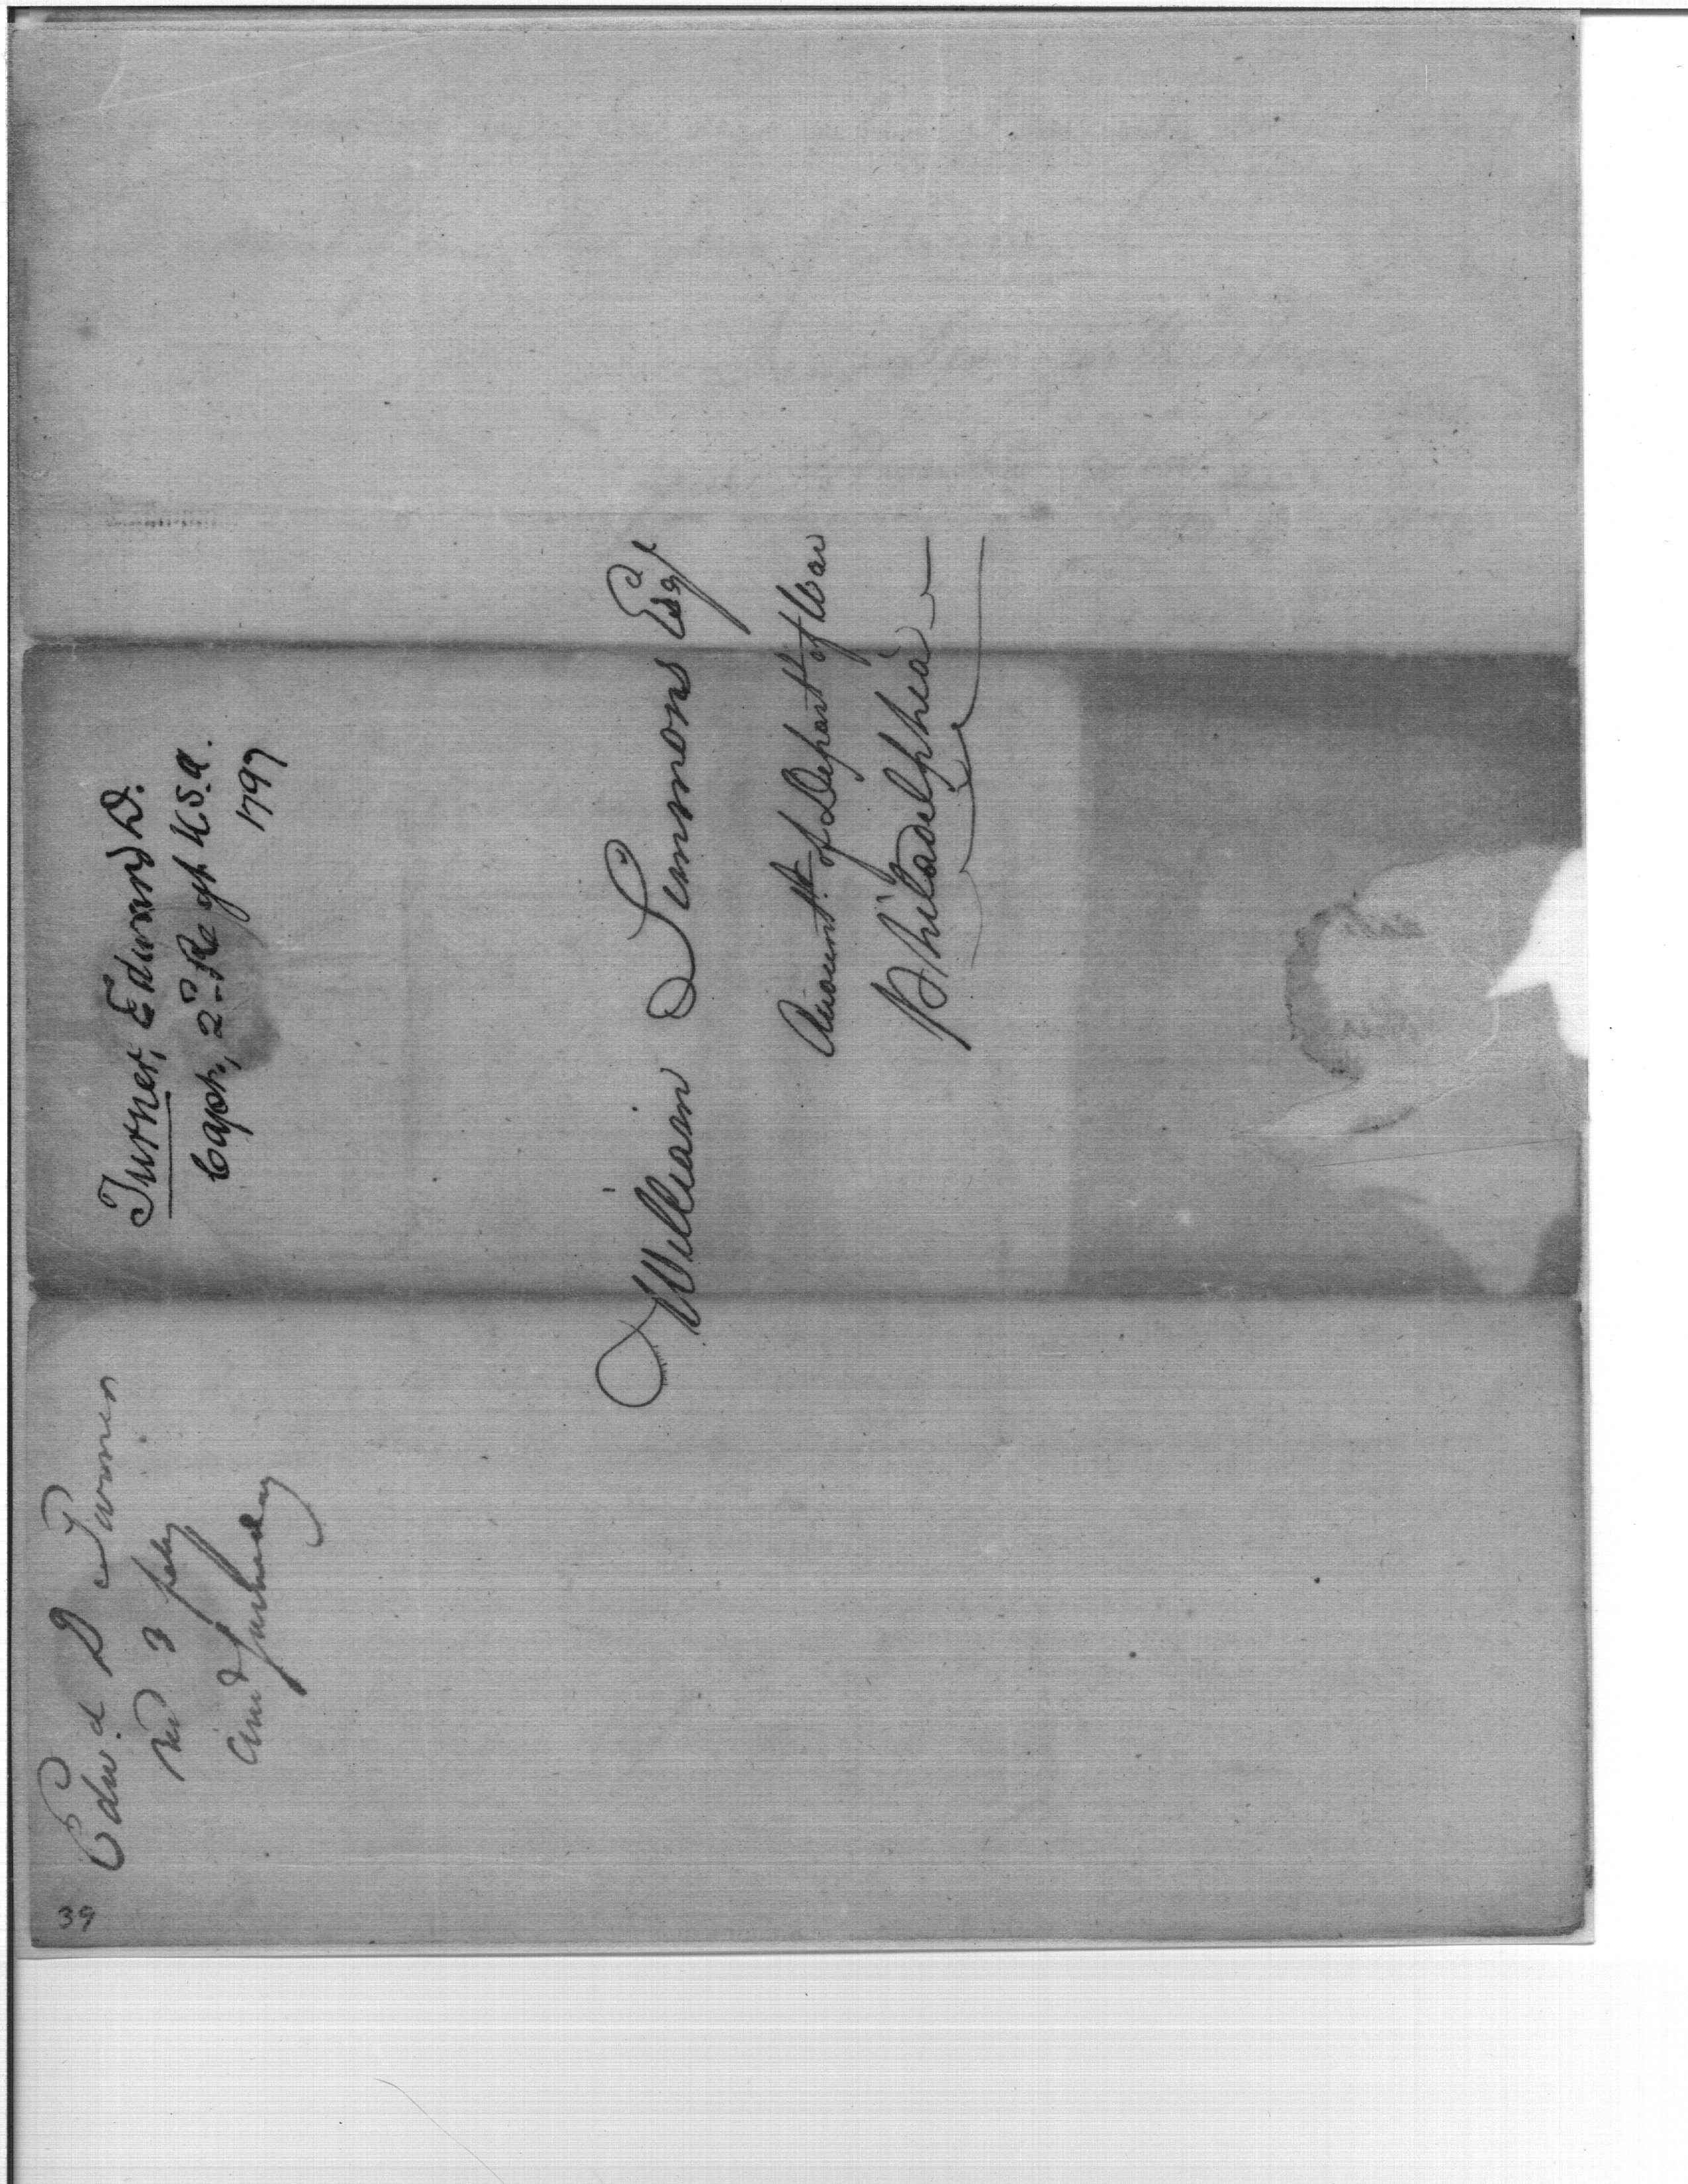 39
Edwd D Turner
No 3 pay
and
Turner, Edward D.
Capt., 2d Regt. U.S.A.
1797
William Simmons Esqr
Accountt. of Departt of War
Philadelphia